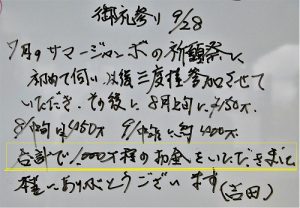 御礼参り 9/28
7月のサマージャンボの祈願祭に
初めて伺い以後三度程参加させて
いただき、その後に8月上旬に150万
8/中旬に450万 9/中旬に約400万
合計で1,000万程の当金をいただきました
本当にありがとうございます(吉田)